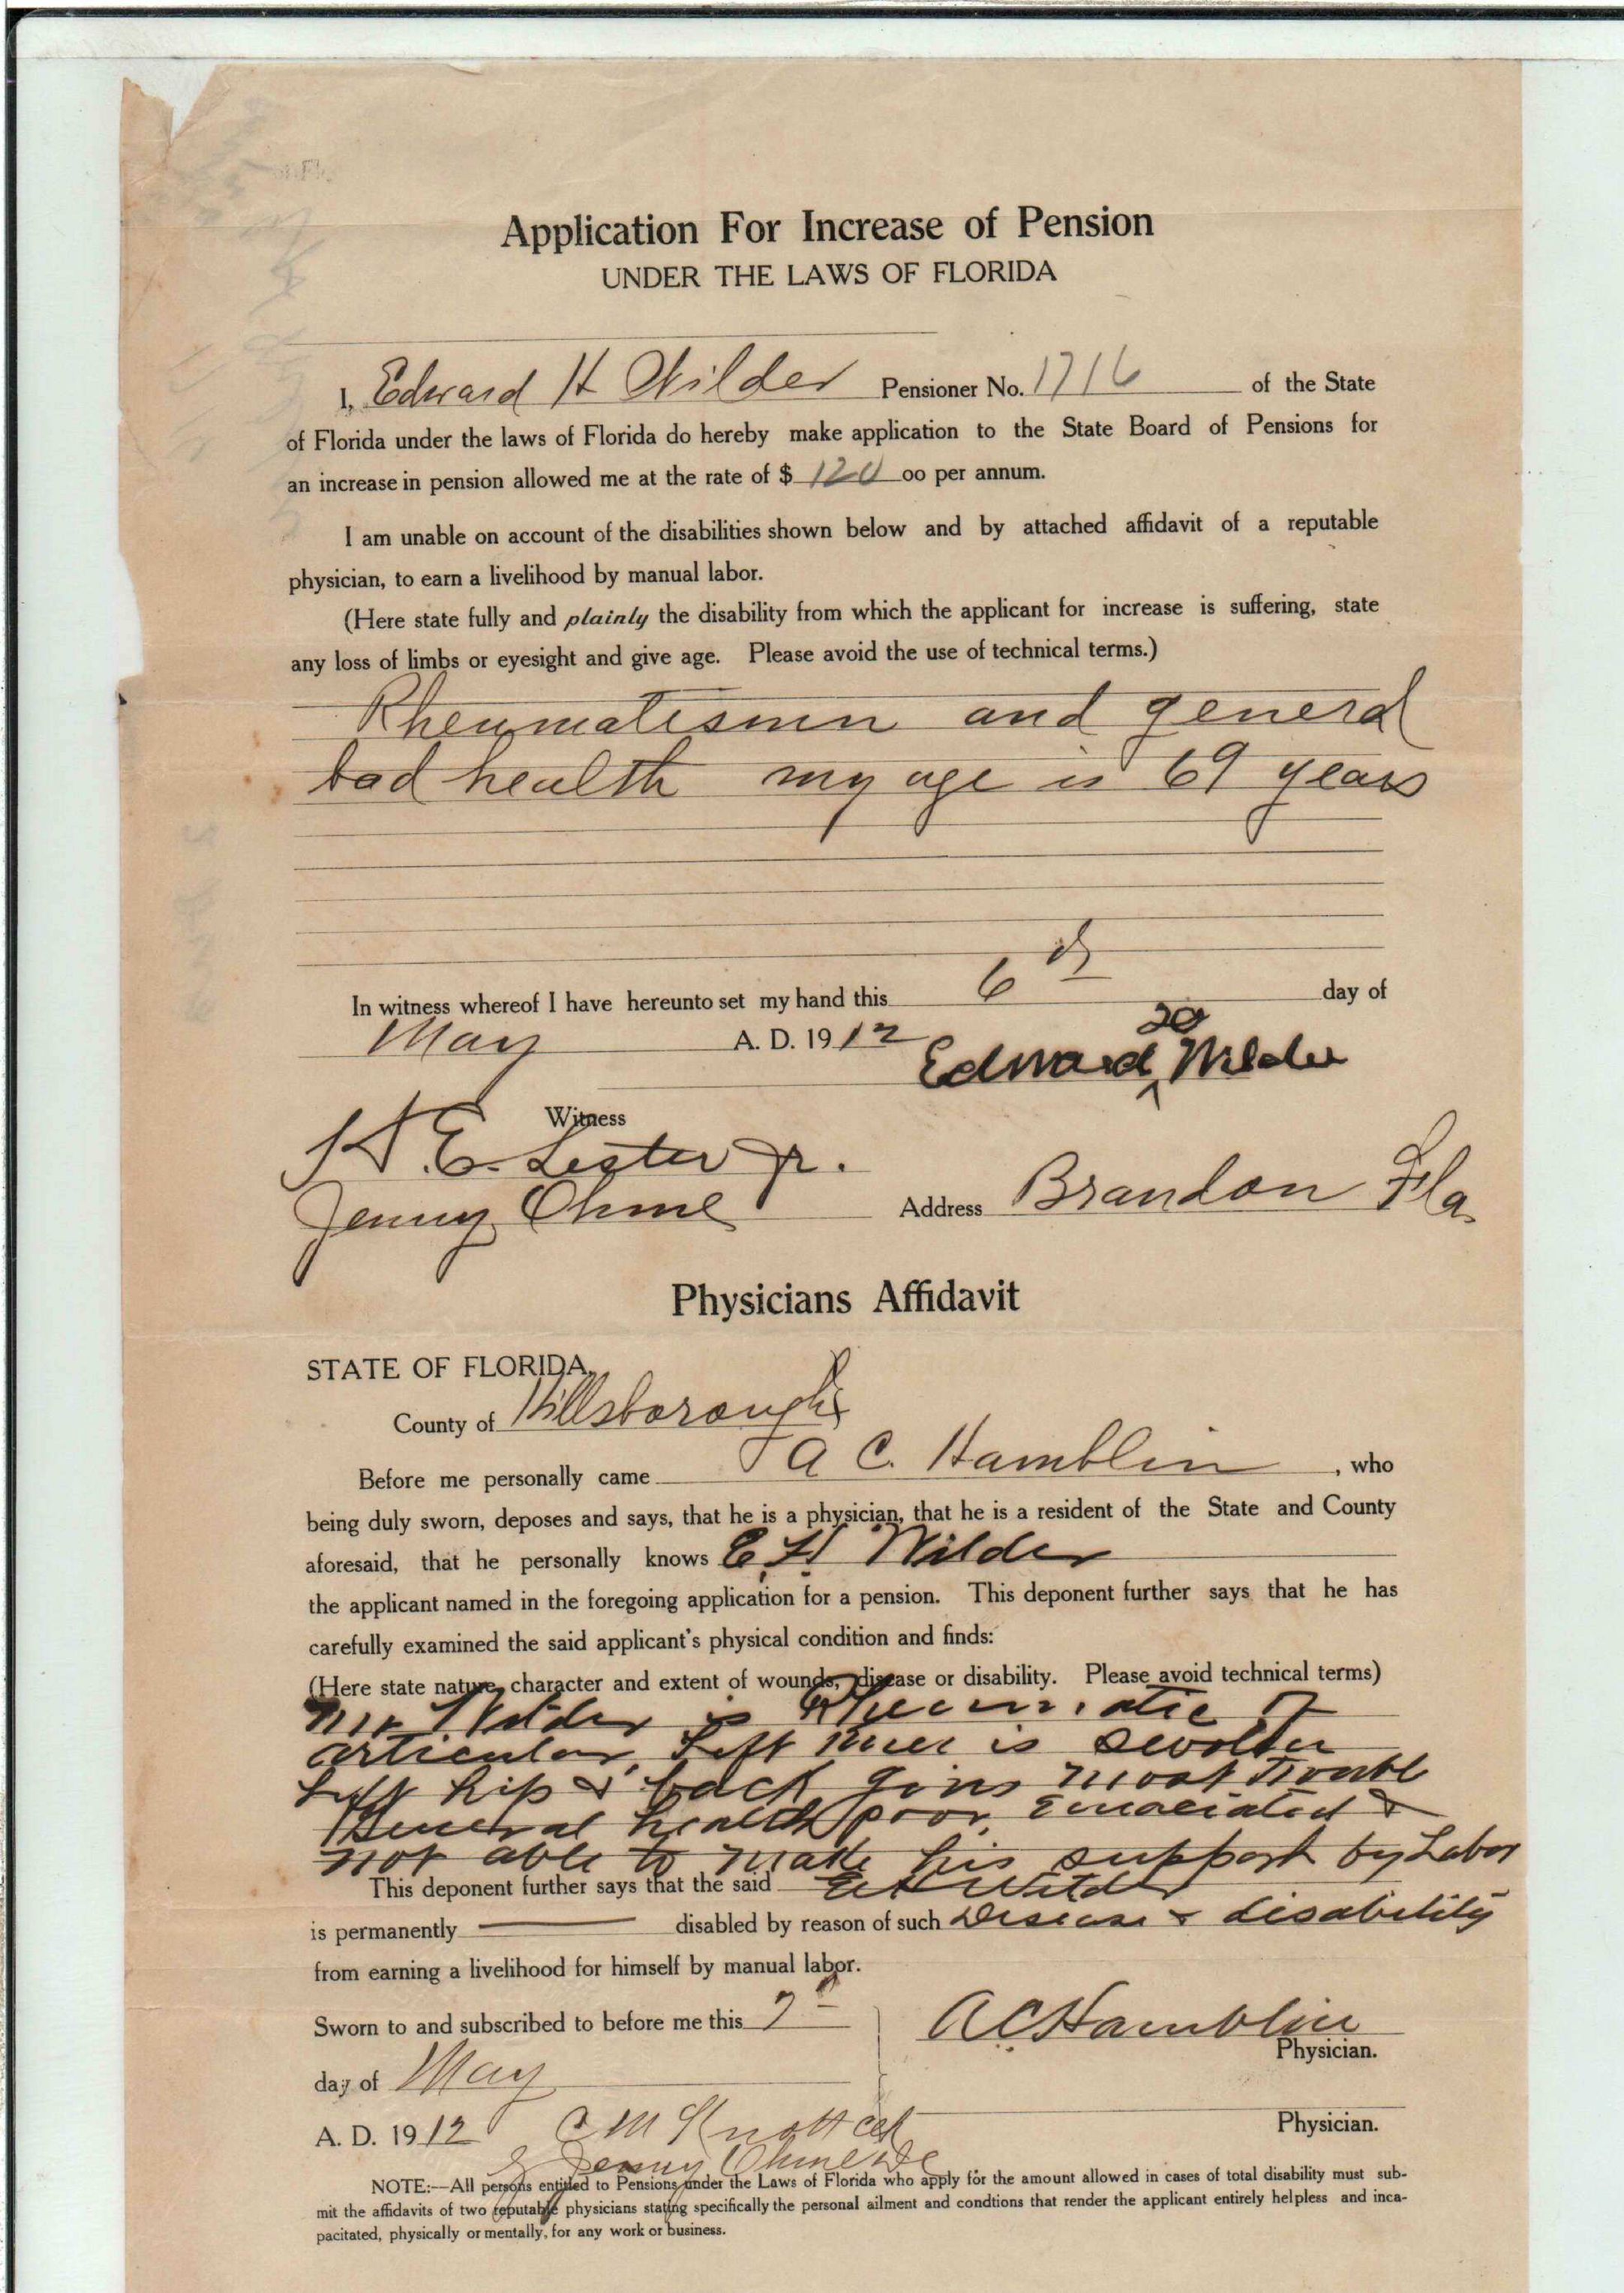 Application For Increase of Pension
UNDER THE LAWS OF FLORIDA
I, Edward H Wilder Pensioner No. 1716 of the State
of Florida under the laws of Florida do hereby make application to the State Board of Pensions for
an increase in pension allowed me at the rate of $ 120 00 per annum.
I am unable on account of the disabilities shown below and by attached affidavit of a reputable
physician, to earn a livelihood by manual labor.
(Here state fully and plainly the disability from which the applicant for increase is suffering, state
any loss of limbs or eyesight and give age. Please avoid the use of technical terms.)
Rheumatismn and generd
bad health my age is 69 years
In witness whereof I have hereunto set my hand this 6th day of
May A. D. 1912
Edward Wilder
Witness
H. E. Lester Jr.
Jenny Ohme Address Brandon Fla.
Physicians Affidavit
STATE OF FLORIDA,
County of Hillsborough
Before me personally came A C. Hamblin, who
being duly sworn, deposes and says, that he is a physician, that he is a resident of the State and County
aforesaid, that he personally knows E. H. Wilder
the applicant named in the foregoing application for a pension. This deponent further says that he has
carefully examined the said applicant's physical condition and finds:
(Here state nature, character and extent of wounds, disease or disability. Please avoid technical terms)
Mr Wilder is Rheumatic
articular, Left knee is swollen
Left hip & back gives most trouble
General health poor, Emaciated &
not able to make his support by Labor
This deponent further says that the said E H Wilder
is permanently disabled by reason of such Disease & disability
from earning a livelihood for himself by manual labor.
Sworn to and subscribed to before me this 7 A C Hamblin
Physician.
day of May
A. D. 1912 C M Knott clk Physician.
Jenny Ohme DC
NOTE:—All persons entitled to Pensions under the Laws of Florida who apply for the amount allowed in cases of total disability must sub-
mit the affidavits of two reputable physicians stating specifically the personal ailment and condtions that render the applicant entirely helpless and inca-
pacitated, physically or mentally, for any work or business.